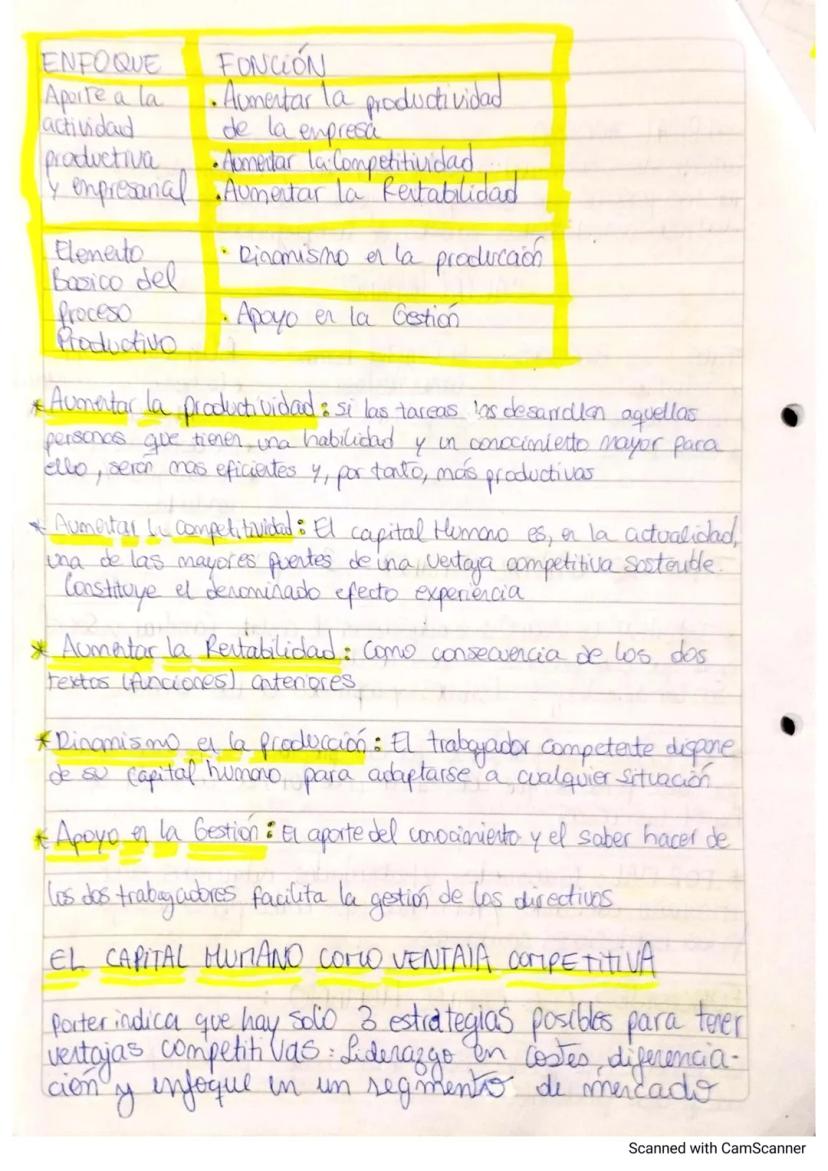 ENFOQUE FUNCIÓN
Aporte a la
actividad
productiva
y empresarial
• Aumentar la productividad
de la empresa
• Aumentar la Competitividad
• Aumentar la Rentabilidad
Elemento
Basico del
Proceso
Productivo
• Dinamismo en la producción
• Apoyo en la Gestión
* Aumentar la productividad: si las tareas las desarrollan aquellas
personas que tienen una habilidad y un conocimiento mayor para
ello, serán mas eficientes y, por tanto, más productivas
* Aumentar la competitividad: El capital Humano es, en la actualidad,
una de las mayores fuentes de una ventaja competitiva sostenible.
Constituye el denominado efecto experiencia
* Aumentar la Rentabilidad: Como consecuencia de los dos
textos (funciones) anteriores
* Dinamismo en la producción: El trabajador competente dispone
de su capital humano para adaptarse a cualquier situación
* Apoyo en la Gestión: El aporte del conocimiento y el saber hacer de
los dos trabajadores facilita la gestión de los directivos
EL CAPITAL HUMANO COMO VENTAJA COMPETITIVA
Porter indica que hay solo 3 estrategias posibles para tener
ventajas competitivas: Liderazgo en costes, diferencia-
ción y enfoque en un segmento de mercado
Scanned with CamScanner